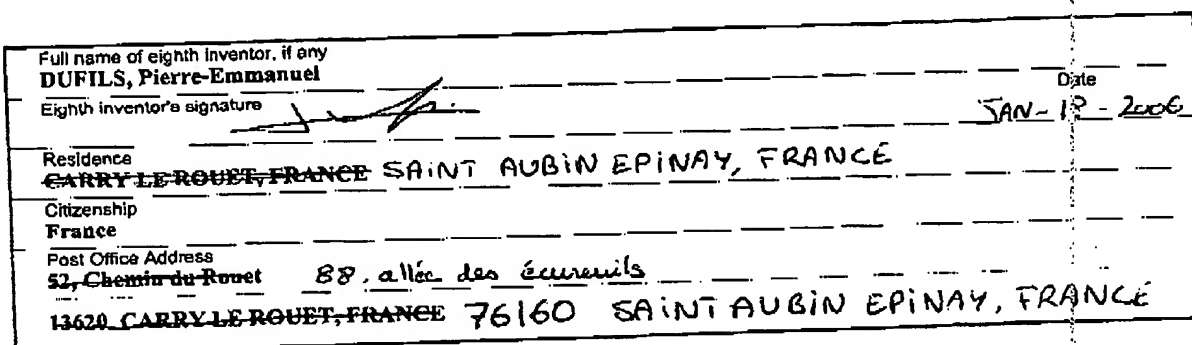 Full name of eighth inventor, if any
DUFILS, Pierre-Emmanuel
Date
Eighth inventor's signature
JAN - - 2006
Residence
CARRY LE ROUET, FRANCE SAINT AUBIN EPINAY, FRANCE
Citizenship
France
Post Office Address
52, Chemin du Rouet 88, allée des écureuils
13620 CARRY LE ROUET, FRANCE 76160 SAINT AUBIN EPINAY, FRANCE